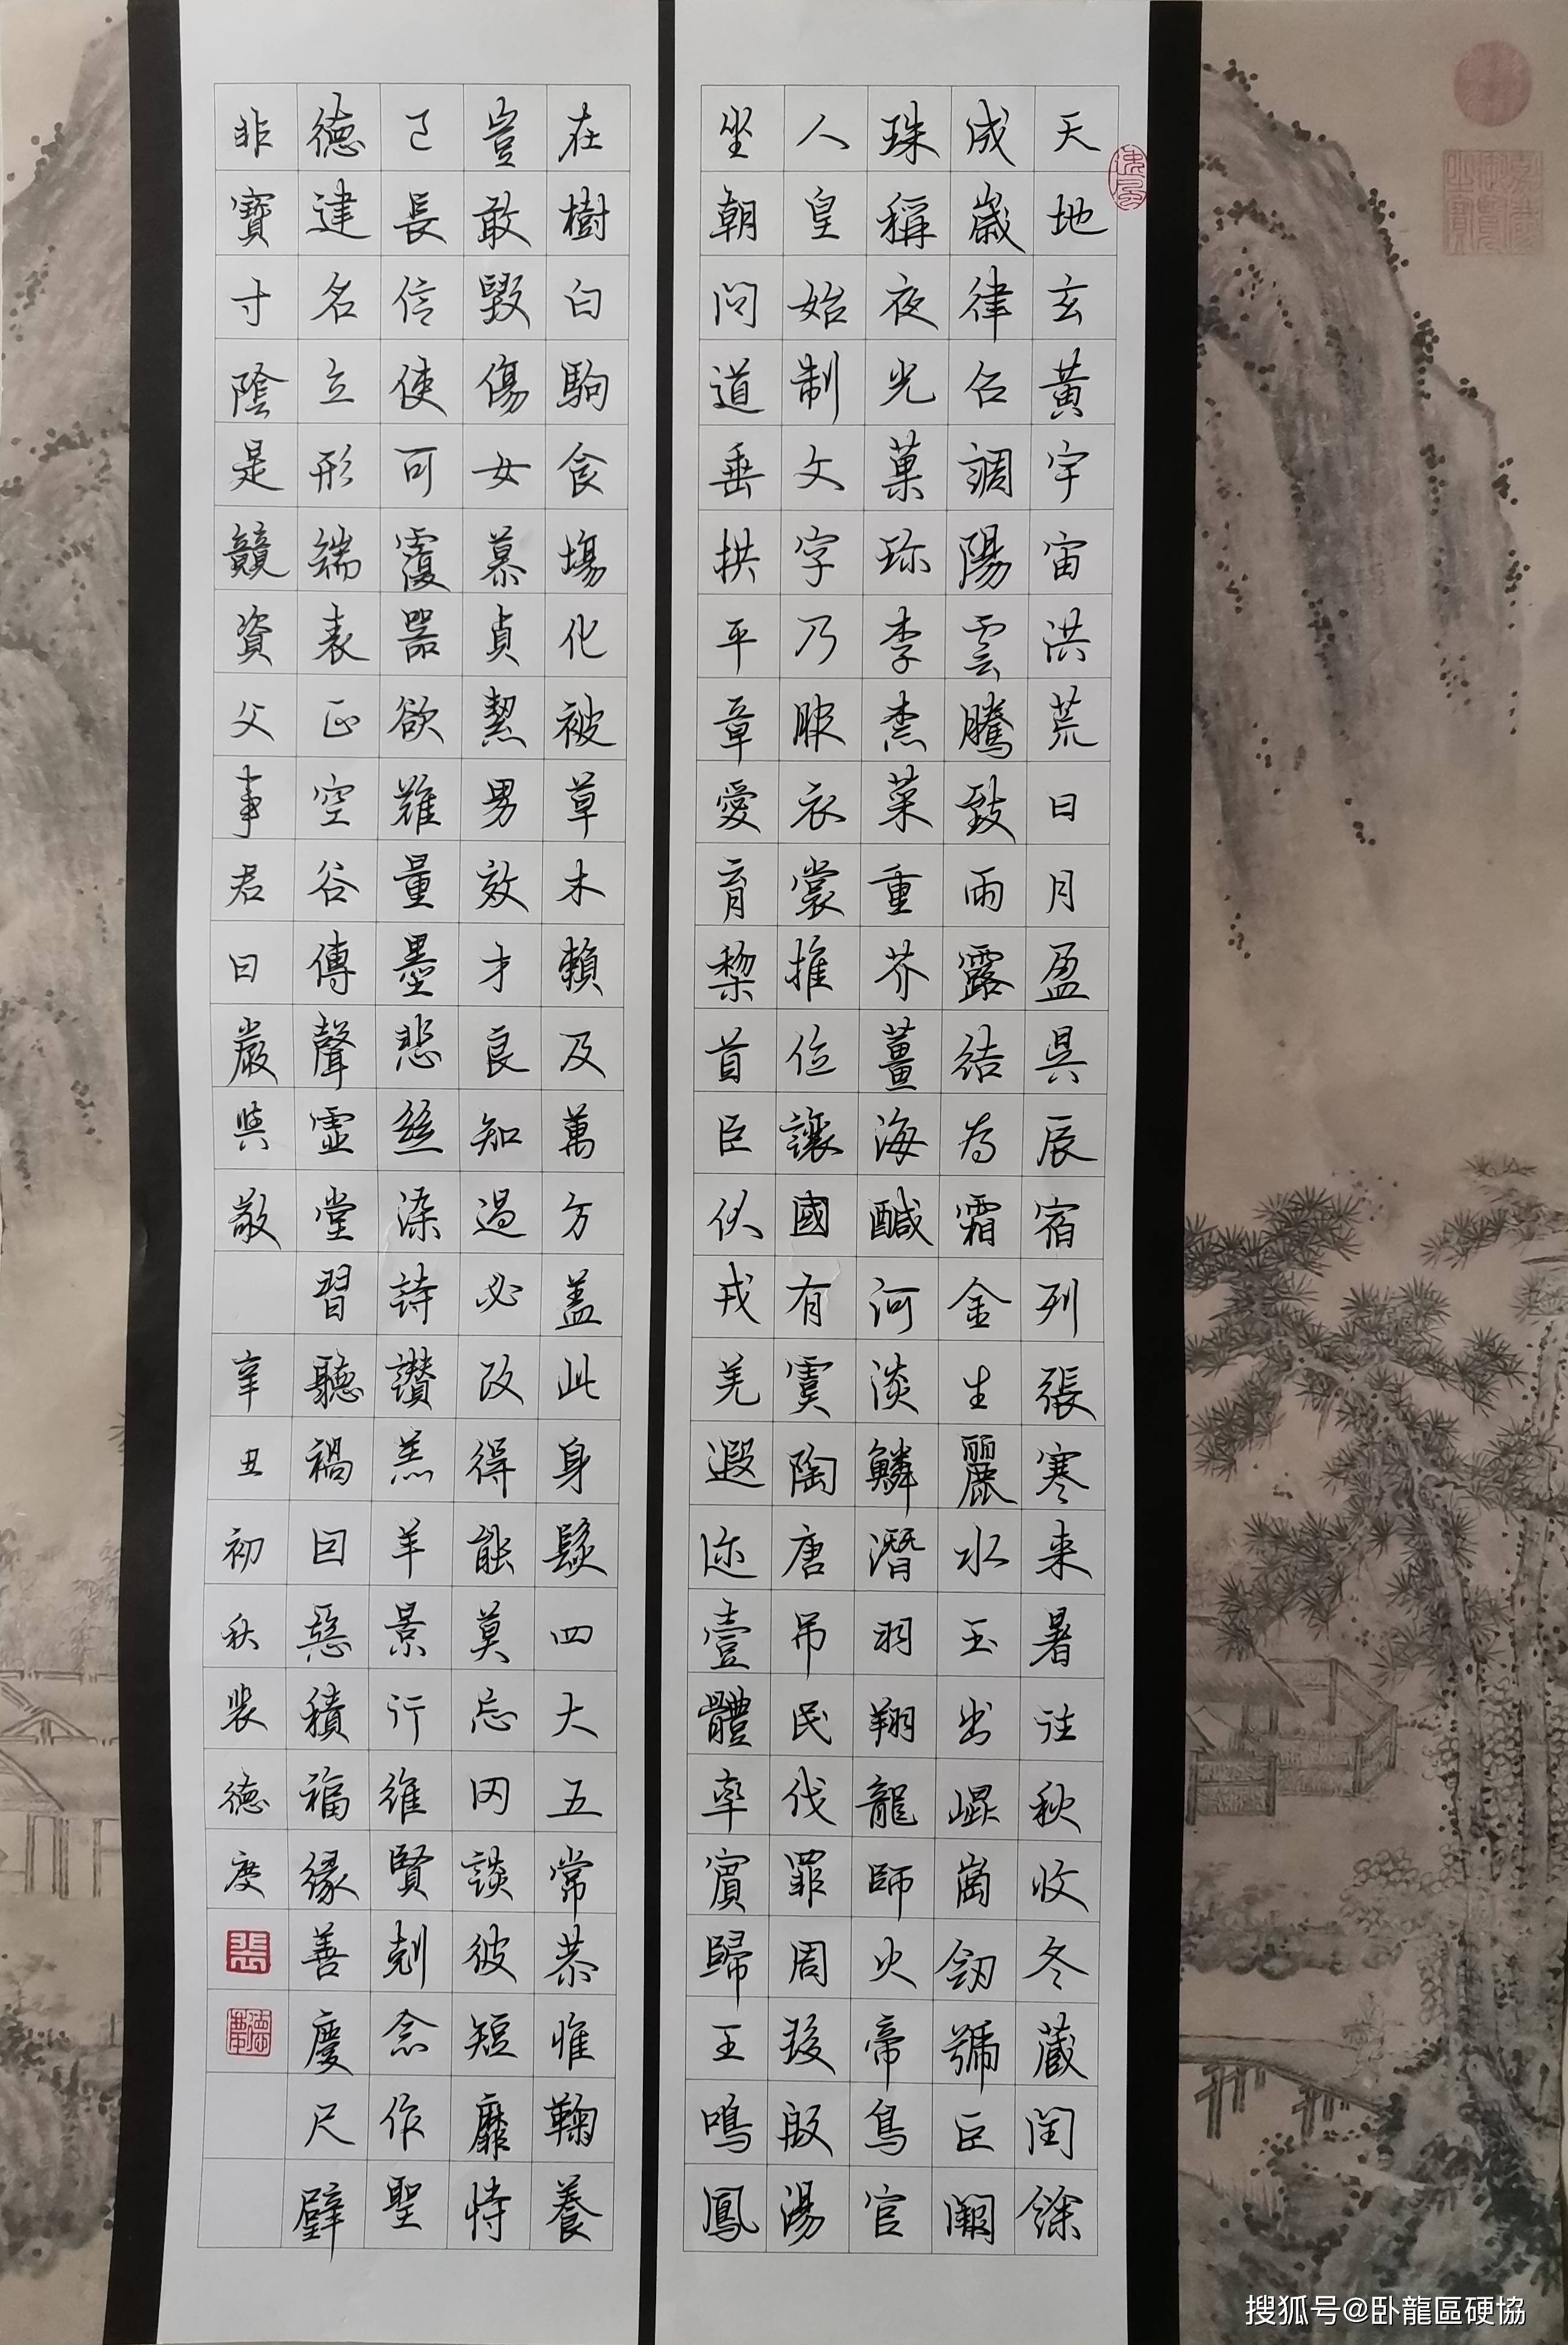 天地玄黃宇宙洪荒日月盈昃辰宿列張寒来暑往秋收冬藏閏餘
成歲律召調陽雲騰致雨露結為霜金生麗水玉出崐崗劒號巨闕
珠稱夜光菓珍李柰菜重芥薑海醎河淡鱗潛羽翔龍師火帝鳥官
人皇始制文字乃服衣裳推位讓國有虞陶唐吊民伐罪周發殷湯
坐朝問道垂拱平章愛育黎首臣伏戎羌遐迩壹體率賓歸王鳴鳳
在樹白駒食場化被草木賴及萬方盖此身髮四大五常恭惟鞠養
豈敢毀傷女慕貞絜男效才良知過必改得能莫忘罔談彼短靡恃
己長信使可覆器欲難量墨悲絲染詩讚羔羊景行維賢剋念作聖
德建名立形端表正空谷傳聲虛堂習聽禍因惡積福緣善慶尺璧
非寶寸陰是競資父事君曰嚴與敬 辛丑初秋裴德
搜狐号@卧龍區硬協